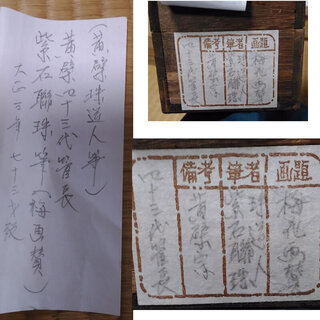 (黄檗珠道人筆)
黄檗四十三代管長
紫石聯珠筆(梅画賛)
大正三年 七十三才歿
画題
梅 画賛
筆者
珠道人
紫石聯珠
備考
黄檗宗
四十三代管長
画題
梅 画賛
筆者
珠道人
紫石聯珠
備考
黄檗宗
四十三代管長